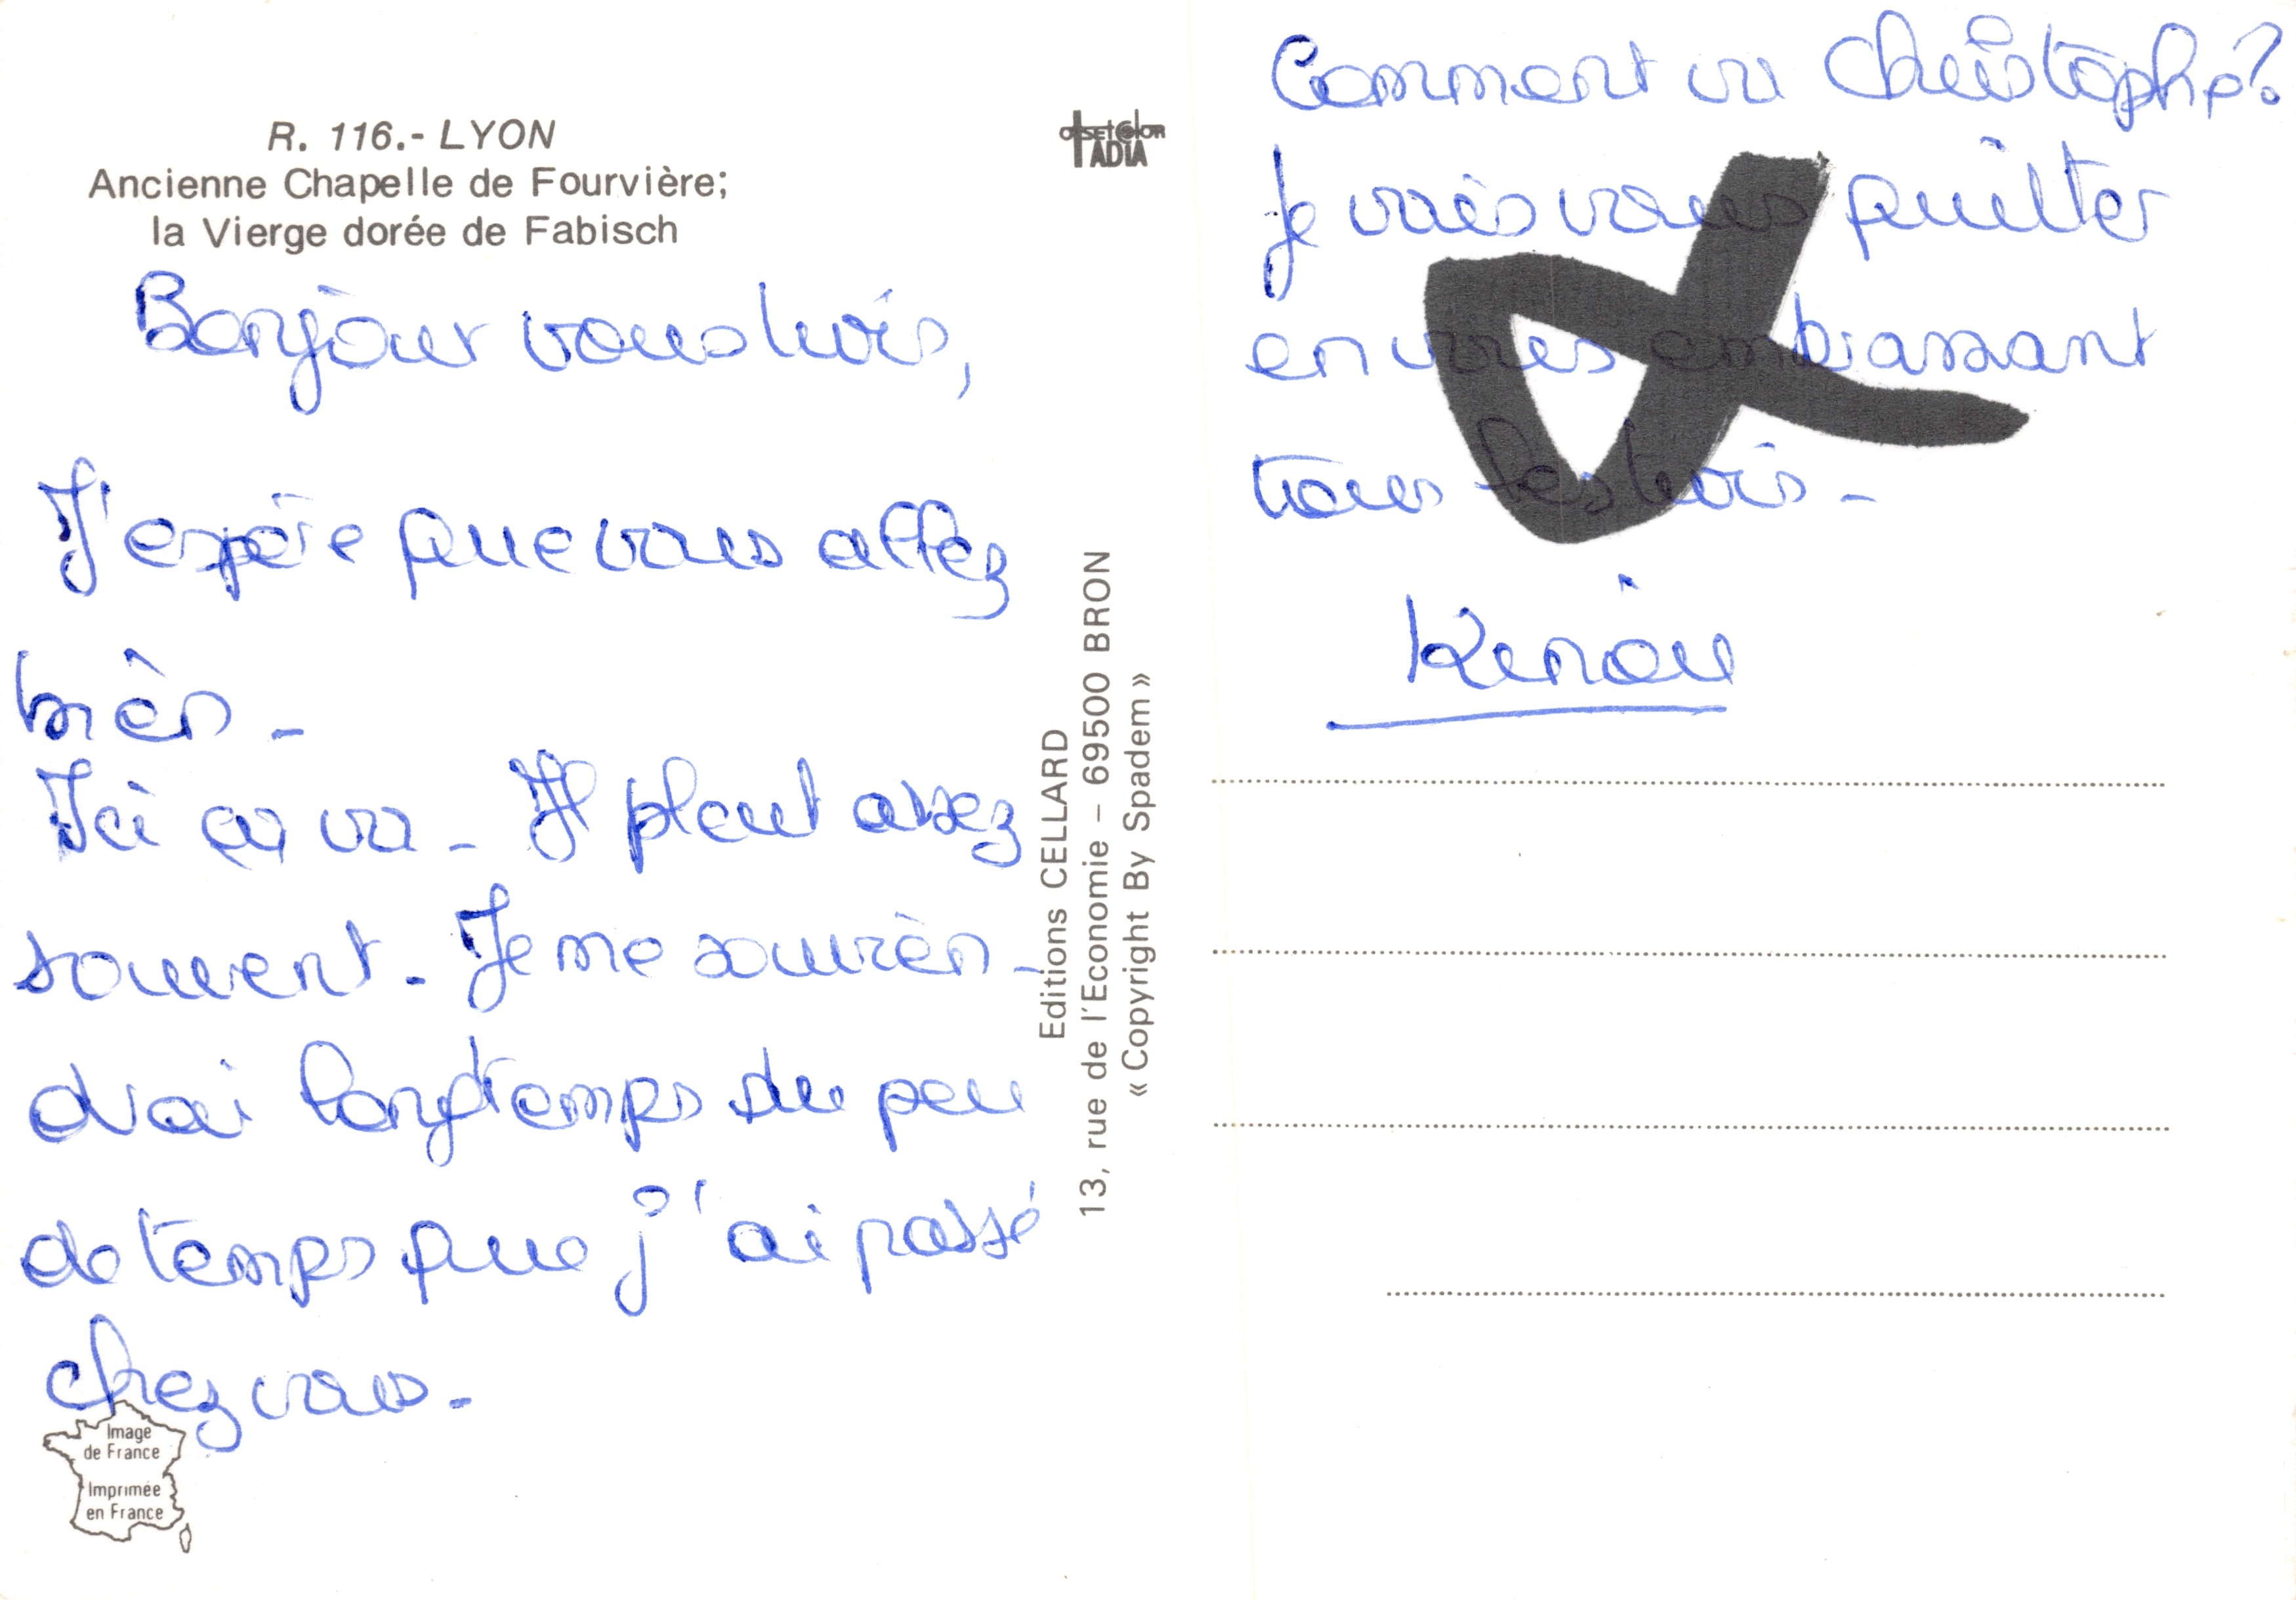 R. 116.- LYON
Ancienne Chapelle de Fourvière;
la Vierge dorée de Fabisch
Bonjour vous trois,
J'espère que vous allez
bien -
Ici ça va - Il pleut assez
souvent - Je me souvien-
drai longtemps du peu
de temps que j'ai passé
chez vous -
Image
de France
Imprimée
en France
offset color
ADIA
Editions CELLARD
13, rue de l'Economie – 69500 BRON
« Copyright By Spadem »
Comment va Christophe?
Je vais vous quitter
en vous embrassant
tous les trois -